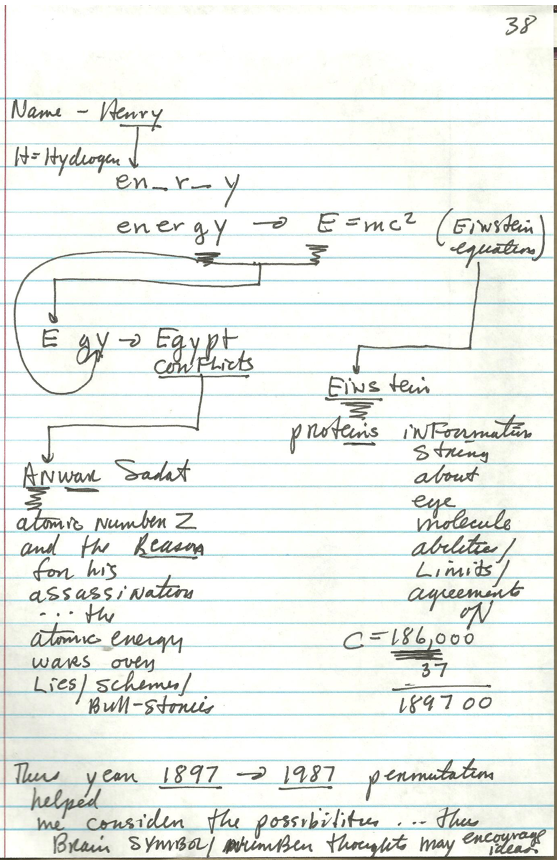 38
Name - Henry
H=Hydrogen
en_r_y
energy → E=mc² (Einstein
equation)
E gy → Egypt
conflicts
Einstein
proteins information
string
about
eye
molecule
abilities/
Limits/
agreements
on
C=186,000
37
189700
Anwar Sadat
atomic number Z
and the Reason
for his
assassination
... the
atomic energy
wars over
Lies/schemes/
Bull-stories
Thus year 1897 → 1987 permutation
helped
me consider the possibilities ... thus
Brain symbol/number thoughts may encourage
ideas